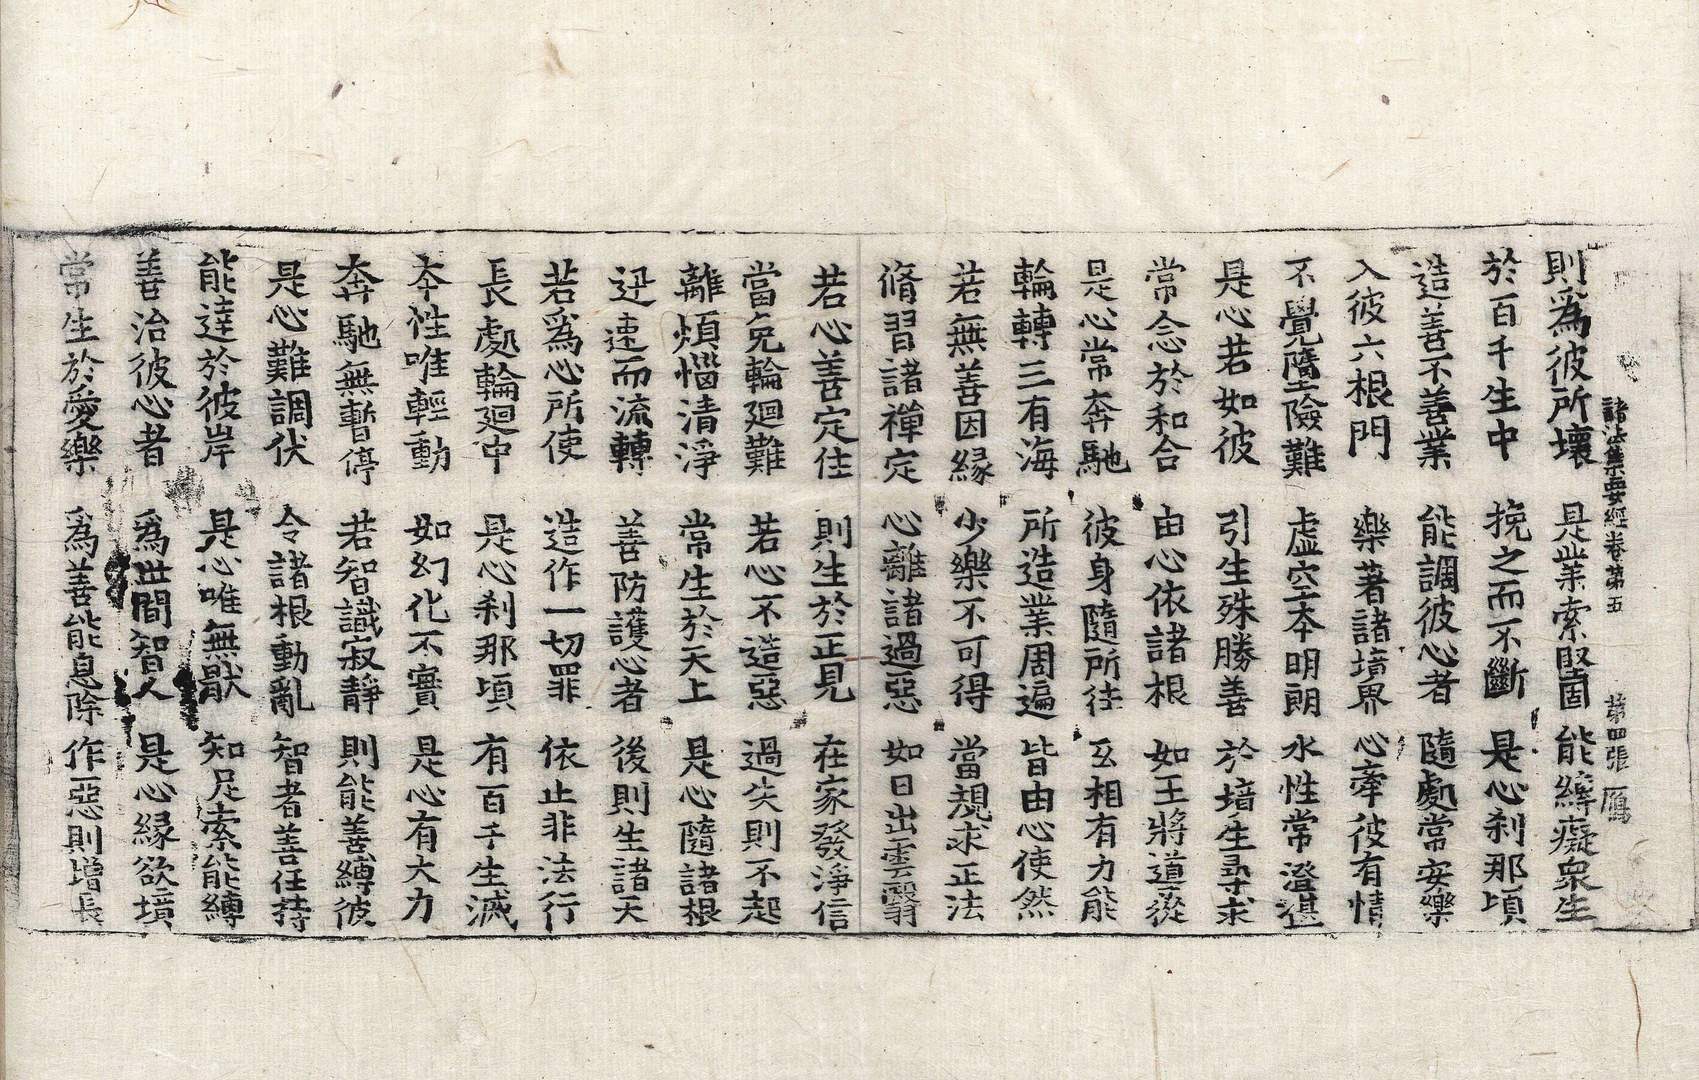 諸法集要經卷第五　第四張　鴈
則爲彼所壞　是業索堅固　能縛癡衆生
於百千生中　挽之而不斷　是心刹那頃
造善不善業　能調彼心者　隨處常安樂
入彼六根門　樂著諸境界　心牽彼有情
不覺墮險難　虛空本明朗　水性常澄湛
是心若如彼　引生殊勝善　於境生尋求
常念於和合　由心依諸根　如王將導從
是心常奔馳　彼身隨所往　互相有力能
輪轉三有海　所造業周遍　皆由心使然
若無善因緣　少樂不可得　當規求正法
脩習諸禪定　心離諸過惡　如日出雲翳
若心善定住　則生於正見　在家發淨信
當免輪廻難　若心不造惡　過失則不起
離煩惱清淨　常生於天上　是心隨諸根
迅速而流轉　善防護心者　後則生諸天
若爲心所使　造作一切罪　依止非法行
長處輪廻中　是心刹那頃　有百千生滅
本性唯輕動　如幻化不實　是心有大力
奔馳無暫停　若智識寂靜　則能善縛彼
是心難調伏　令諸根動亂　智者善任持
能達於彼岸　是心唯無猒　知足索能縛
善治彼心者　爲世間智人　是心緣欲境
常生於愛樂　爲善能息除　作惡則增長